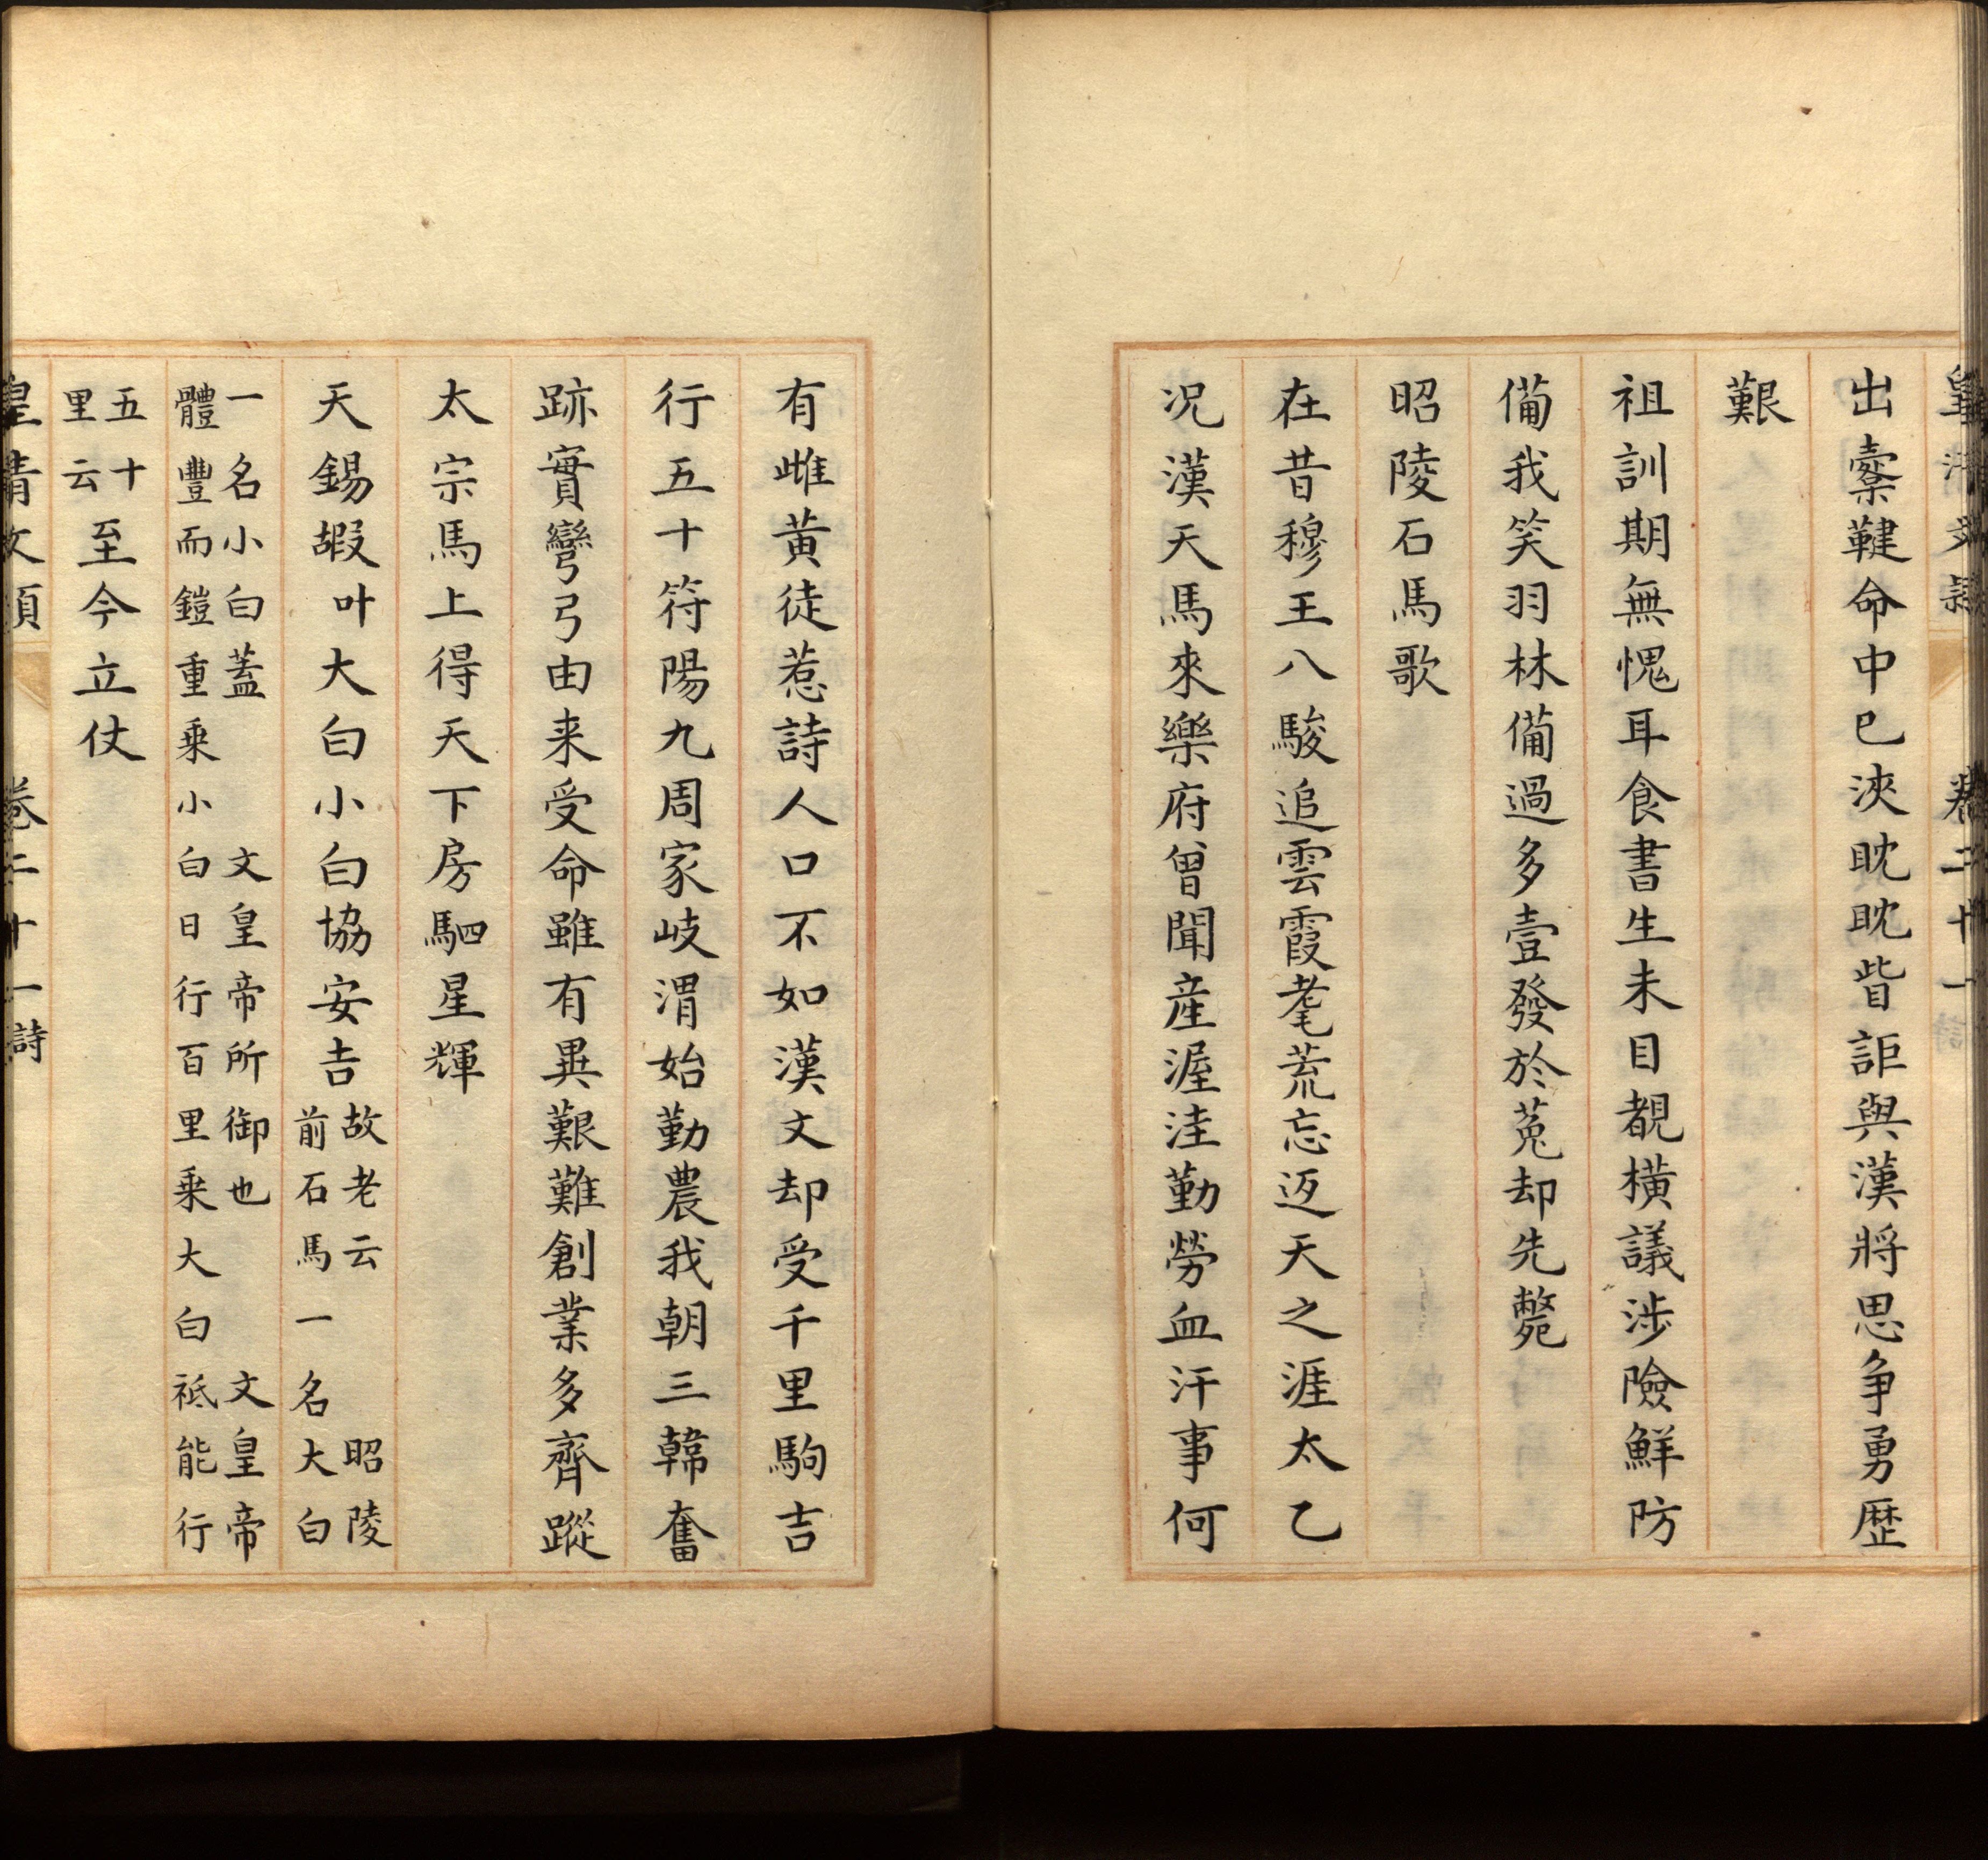 皇清文穎 卷二十一 詩
出櫜鞬命中已浹眈眈眥詎與漢將思争勇歴
艱
祖訓期無愧耳食書生未目覩横議涉險鮮防
備我笑羽林備過多壹發於菟却先斃
昭陵石馬歌
在昔穆王八駿追雲霞耄荒忘返天之涯太乙
况漢天馬來樂府曾聞産渥洼勤勞血汗事何
有雌黄徒惹詩人口不如漢文却受千里駒吉
行五十符陽九周家岐渭始勤農我朝三韓奮
跡實彎弓由来受命雖有異艱難創業多齊蹤
太宗馬上得天下房駟星輝
天錫嘏叶大白小白協安吉故老云 昭陵
前石馬一名大白
一名小白蓋 文皇帝所御也 文皇帝
體豐而鎧重乗小白日行百里乗大白祗能行
五十
里云至今立仗
皇清文穎 卷二十一 詩